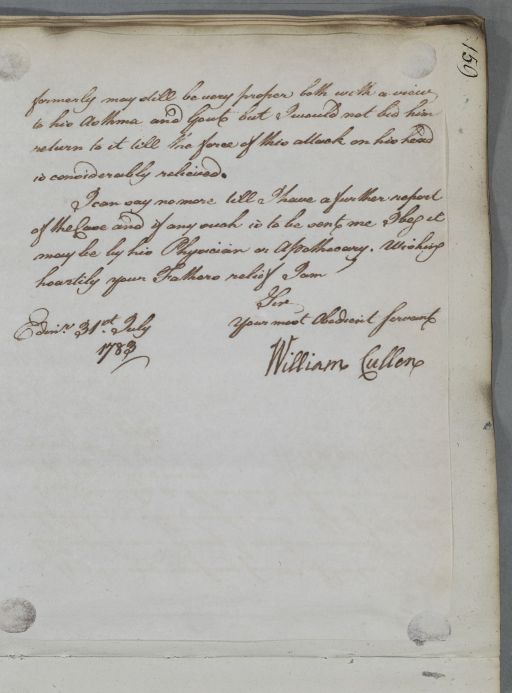 159
formerly may still be very proper both with a view
to his Asthma and Gout but I would not bid him
return to it till the force of this attack on his head
is considerably relieved.
I can say no more till I have a further report
of the Case and if any such is to be sent me I beg it
may be by his Physician or Apothecary. Wishing
heartily your Fathers relief I am
Sir
Your most Obedient Servant
Edinr. 31st July
1783
William Cullen